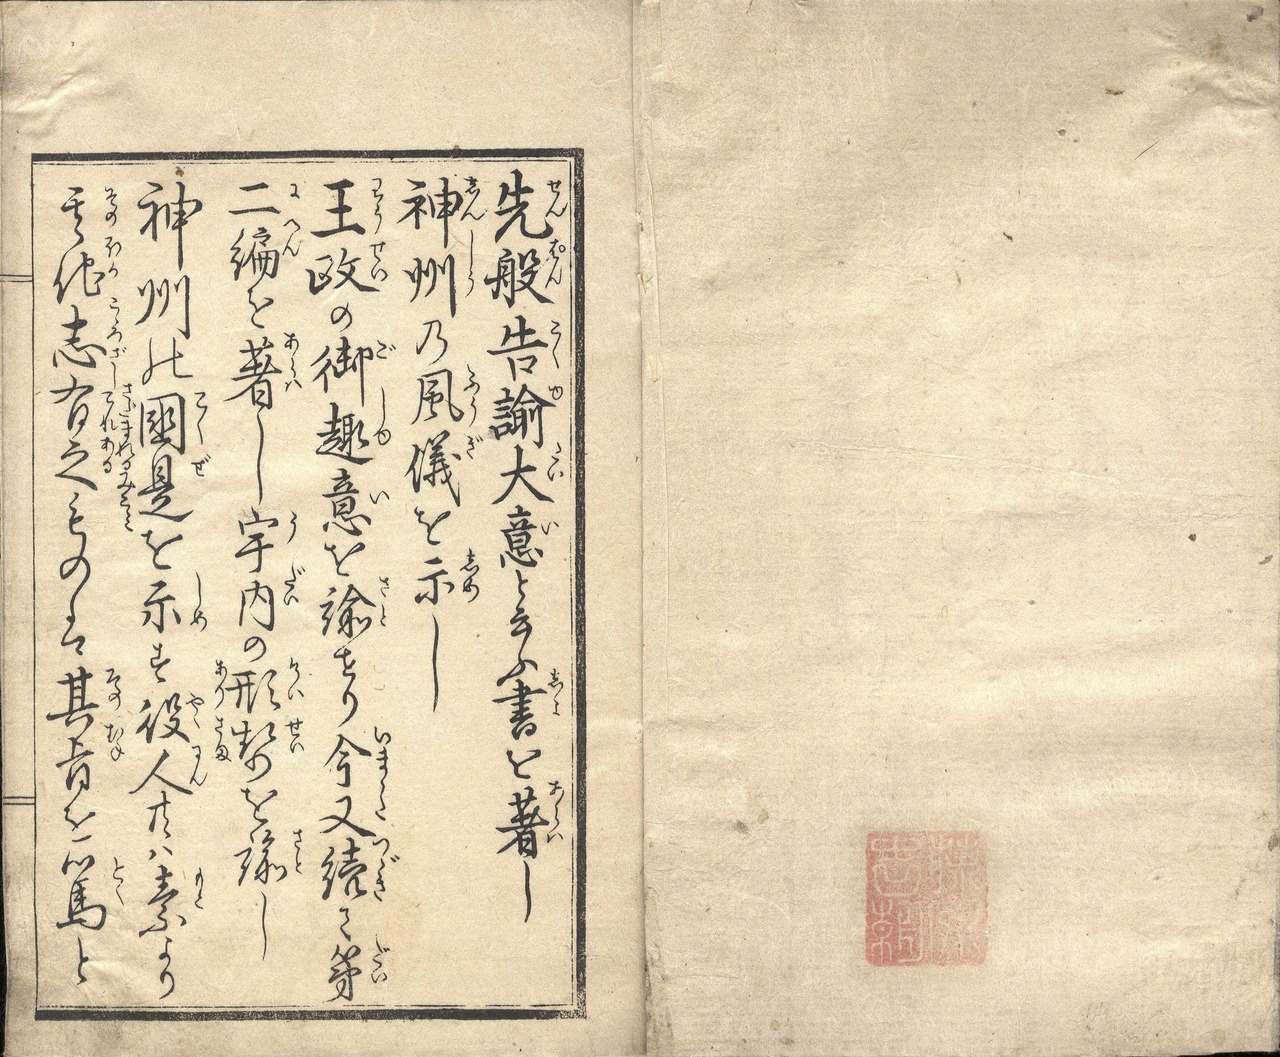 先般告諭大意と云ふ書を著し
神州乃風儀を示し
王政の御趣意を諭せり今又續て第
二編を著し宇内の形勢を諭し
神州の國是を示す役人共ハ素より
其他志有之ものは其旨を篤と